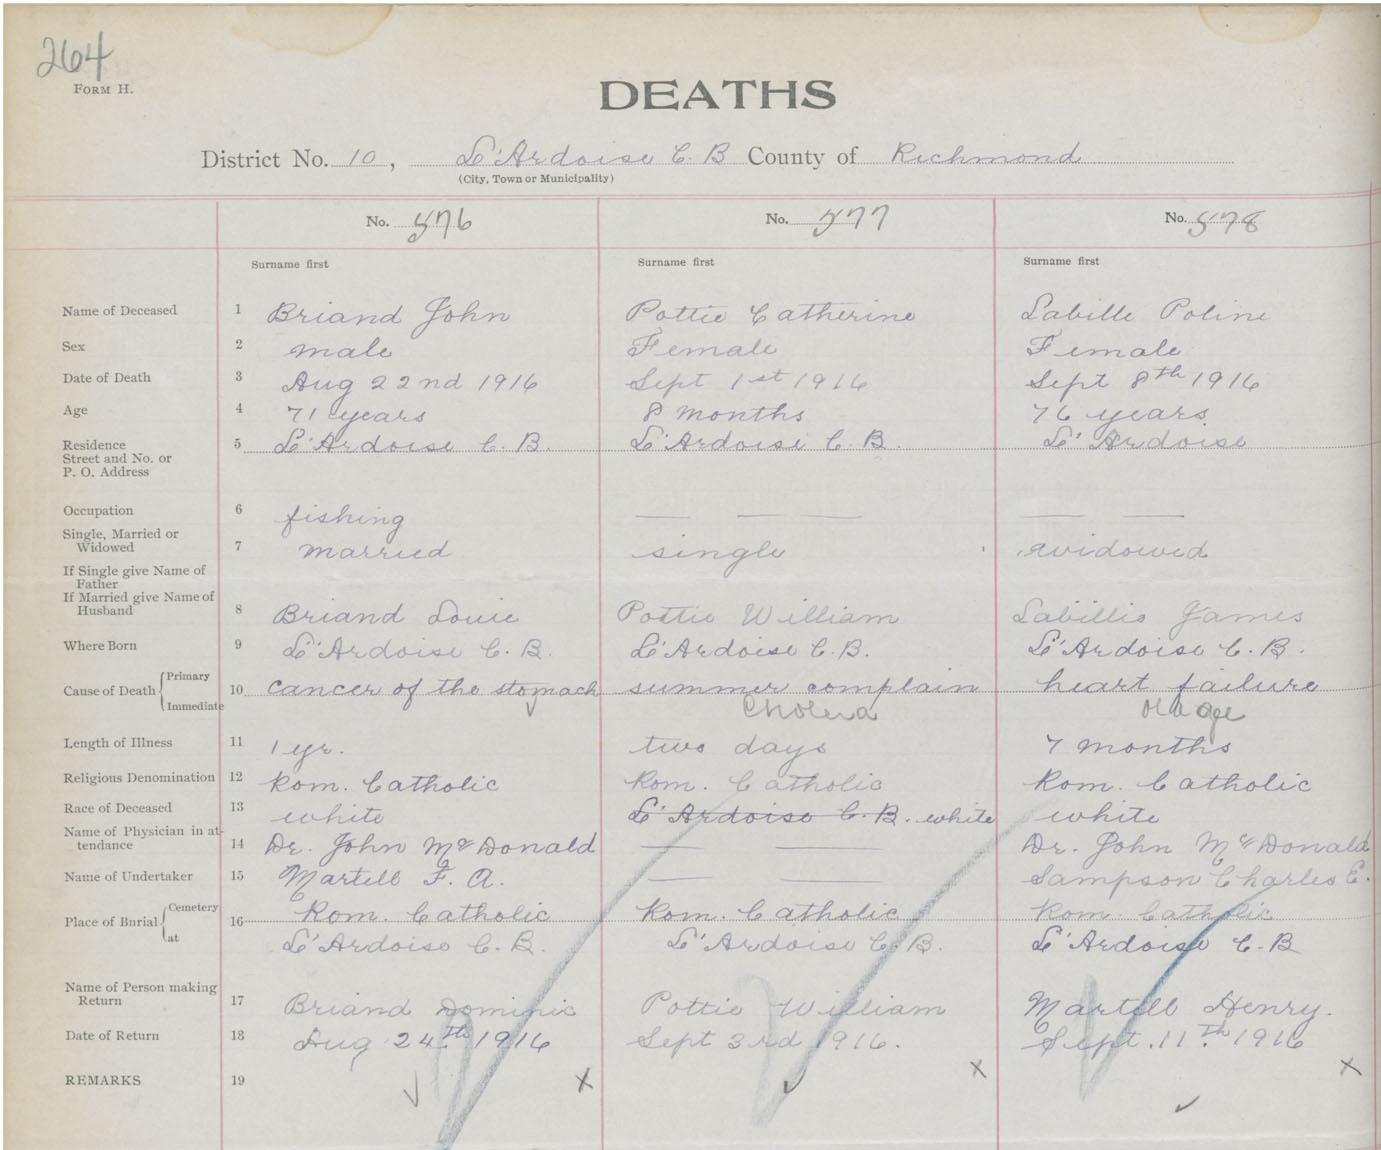 264
FORM H.
DEATHS
District No. 10, L'Ardoise C. B County of Richmond
(City, Town or Municipality)
No. 576 No. 577 No. 578
Surname first Surname first Surname first
Name of Deceased 1 Briand John Pottie Catherine Labille Poline
Sex 2 male Female Female
Date of Death 3 Aug 22nd 1916 Sept 1st 1916 Sept 8th 1916
Age 4 71 years 8 months 76 years
Residence 5 L'Ardoise C. B. L'Ardoise C. B. L'Ardoise
Street and No. or
P. O. Address
Occupation 6 fishing — — — —
Single, Married or
Widowed 7 married single widowed
If Single give Name of
Father
If Married give Name of
Husband 8 Briand Louie Pottie William Labillis James
Where Born 9 L'Ardoise C. B. L'Ardoise C. B. L'Ardoise C. B.
Cause of Death { Primary 10 cancer of the stomach summer complain heart failure
Immediate Cholera old age
Length of Illness 11 1 yr. two days 7 months
Religious Denomination 12 Rom. Catholic Rom. Catholic Rom. Catholic
Race of Deceased 13 white L'Ardoise C. B. white white
Name of Physician in at-
tendance 14 Dr. John McDonald — — Dr. John McDonald
Name of Undertaker 15 Martell F. A. — — Sampson Charles E.
Place of Burial { Cemetery 16 Rom. Catholic Rom. Catholic Rom. Catholic
at L'Ardoise C. B. L'Ardoise C. B. L'Ardoise C. B
Name of Person making
Return 17 Briand Dominic Pottie William Martell Henry.
Date of Return 18 Aug 24th 1916 Sept 3rd 1916. Sept. 11th 1916
REMARKS 19 x x x